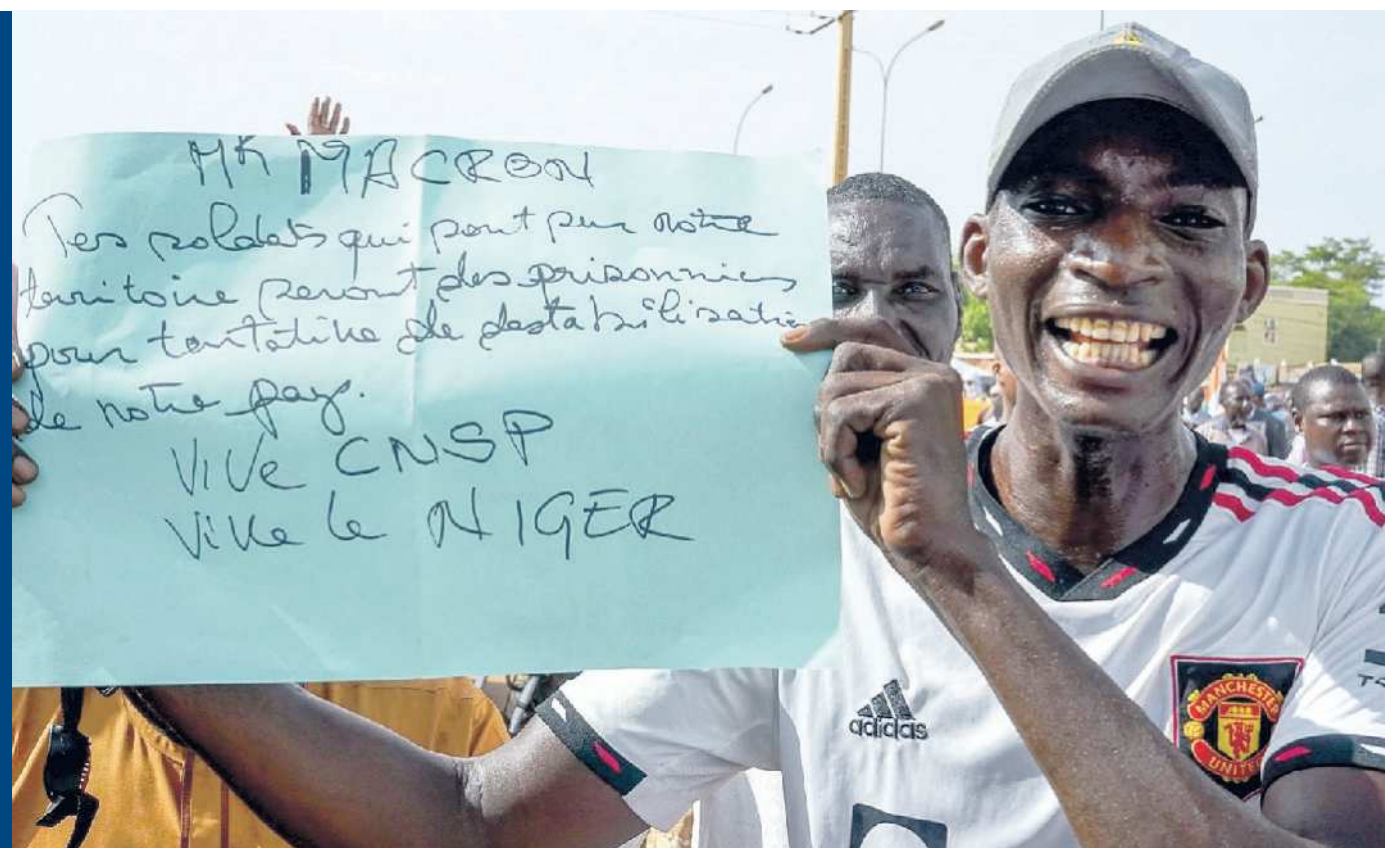 MR MACRON
Tes soldats qui sont sur notre
territoire seront des prisonniers
pour tentative de destabilisatio
de notre pays.
VIVe CNSP
ViVe le NIGER
adidas
MANCHESTER
UNITED